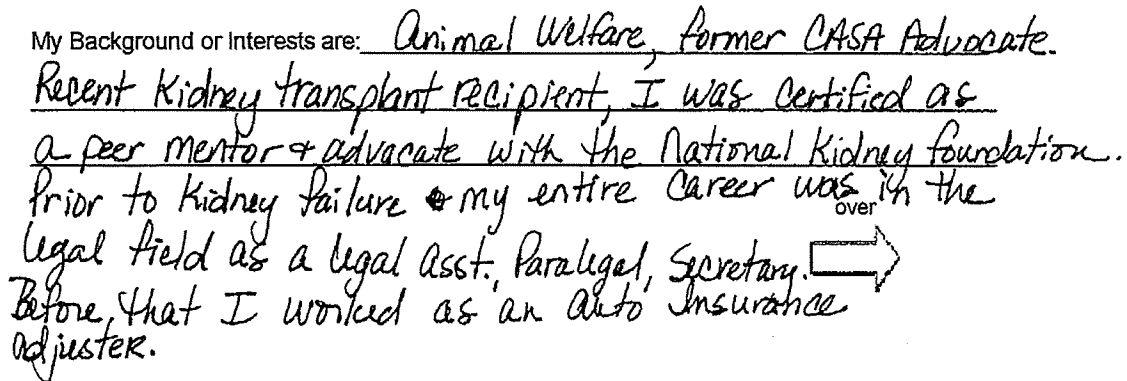 My Background or Interests are: Animal Welfare, former CASA Advocate.
Recent Kidney transplant recipient, I was certified as
a peer mentor & advacate with the National Kidney foundation.
Prior to Kidney failure my entire Career was in the
over
legal field as a legal asst., Paralegal, Secretary.
Before, that I worked as an auto Insurance
adjuster.